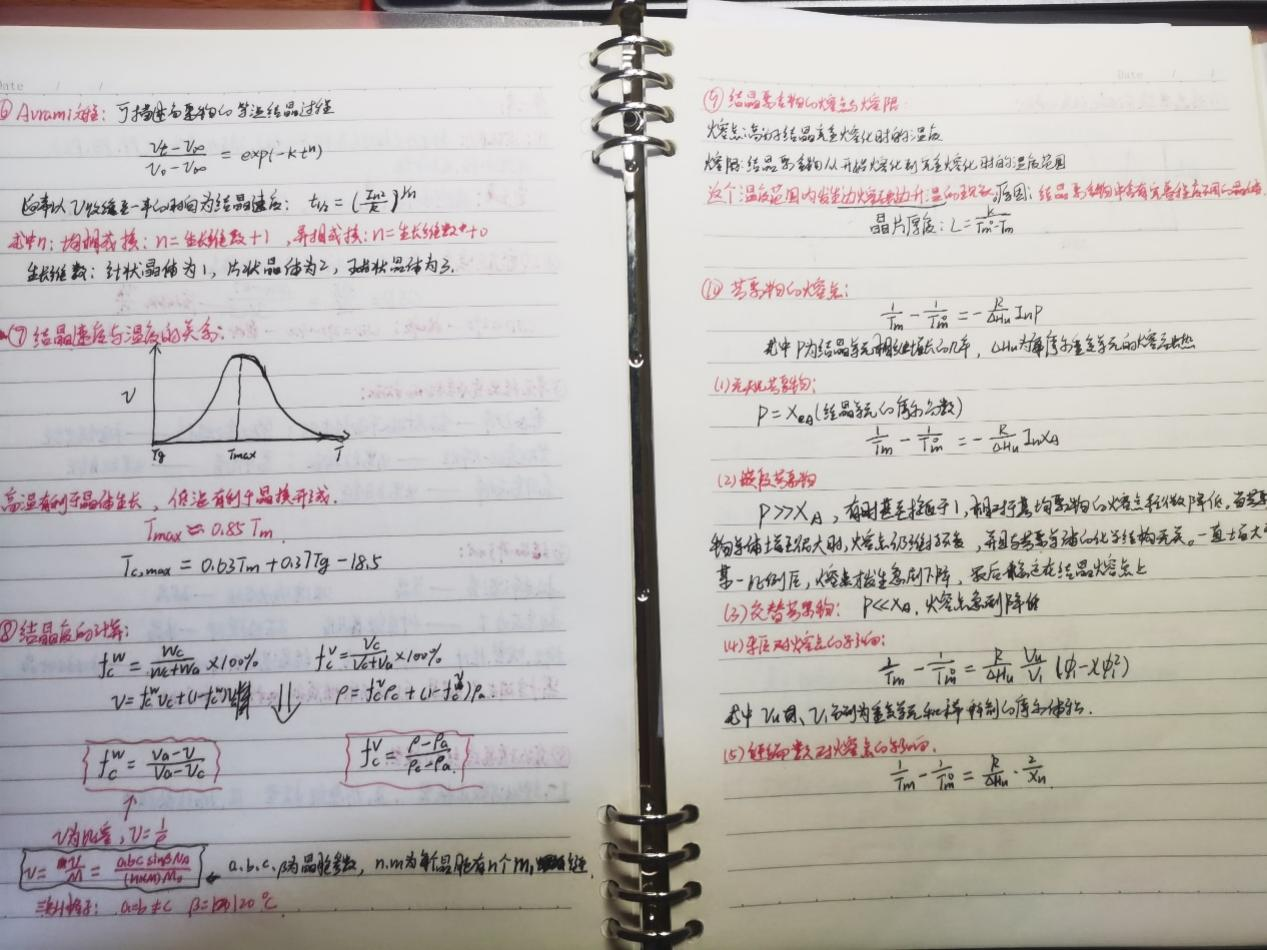 Date / /
⑥ Avrami方程：可描述高聚物的等温结晶过程
(Vt-V∞)/(V0-V∞) = exp(-ktⁿ)
通常以V收缩至一半的时间为结晶速度：t1/2 = (ln2/k)^1/n
式中n：均相成核：n=生长维数+1，异相成核：n=生长维数+0
生长维数：针状晶体为1，片状晶体为2，球状晶体为3.
⑦ 结晶速度与温度的关系：
V
Tg Tmax T
高温有利于晶体生长，低温有利于晶核形成.
Tmax ≈ 0.85 Tm
Tc,max = 0.63Tm + 0.37Tg - 18.5
⑧ 结晶度的计算：
fcW = Wc/(Wc+Wa) ×100% fcV = Vc/(Vc+Va) ×100%
v = fcW vc + (1-fcW)va ρ = fcV ρc + (1-fcV)ρa.
fcW = (va-v)/(va-vc) fcV = (ρ-ρa)/(ρc-ρa)
v为比容，v = 1/ρ
v = V/M = (abc sinβ NA)/((n×m)M0) ← a.b.c.β为晶胞参数，n.m为每个晶胞有n个m，链.
a=b≠c β=120℃
Date / /
⑨ 结晶聚合物的熔点与熔限
熔点：高分子结晶完全熔化时的温度
熔限：结晶聚合物从开始熔化到完全熔化时的温度范围
这个温度范围内发生边熔融边升温的现象，原因：结晶聚合物中含有完善程度不同的晶体.
晶片厚度：L = k/(Tm°-Tm)
⑩ 共聚物的熔点：
1/Tm - 1/Tm° = -R/ΔHu lnP
式中P为结晶单元相继增长的几率，ΔHu为每摩尔重复单元的熔融热
(1) 无规共聚物：
P = XA (结晶单元的摩尔分数)
1/Tm - 1/Tm° = -R/ΔHu lnXA
(2) 嵌段共聚物
P>>XA，有时甚至接近于1，相对于其均聚物的熔点稍微降低。当共聚
物单体增至很大时，熔点仍维持不变，并且与共聚单体的化学结构无关。一直增大
某一比例后，熔点才发生急剧下降，最后稳定在结晶熔点上
(3) 交替共聚物：P<<XA，熔点急剧降低
(4) 杂质对熔点的影响：
1/Tm - 1/Tm° = R/ΔHu Vu/V1 (φ1-χφ1²)
式中Vu、V1分别为重复单元和稀释剂的摩尔体积.
(5) 链端数对熔点的影响.
1/Tm - 1/Tm° = R/ΔHu · 2/Xn.